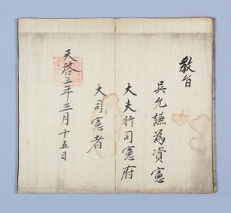 教旨
吳允謙為資憲
大夫行司憲府
大司憲者
天啓三年三月十五日